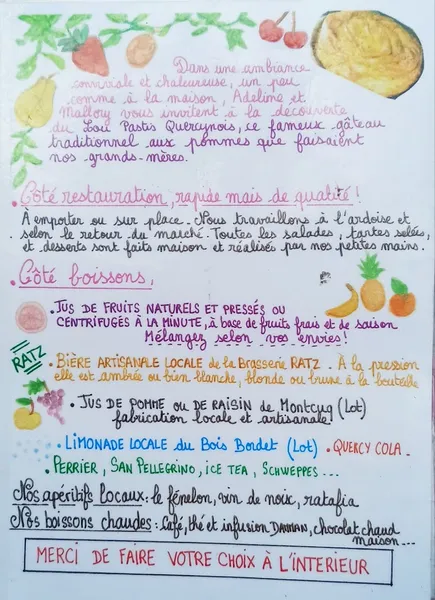 Dans une ambiance
conviviale et chaleureuse, un peu
comme à la maison, Adeline et
Mallory vous invitent à la découverte
du Lou Pastis Quercynois, ce fameux gâteau
traditionnel aux pommes que faisaient
nos grands-mères.
• Côté restauration, rapide mais de qualité !
À emporter ou sur place. Nous travaillons à l'ardoise et
selon le retour du marché. Toutes les salades, tartes salées,
et desserts sont faits maison et réalisés par nos petites mains.
• Côté boissons,
• JUS DE FRUITS NATURELS ET PRESSÉS OU
CENTRIFUGÉS À LA MINUTE, à base de fruits frais et de saison
Mélangez selon vos envies !
RATZ
• BIÈRE ARTISANALE LOCALE de la Brasserie RATZ. À la pression
elle est ambrée ou bien blanche, blonde ou brune à la bouteille
• JUS DE POMME OU DE RAISIN de Montcuq (Lot)
fabrication locale et artisanale
• LIMONADE LOCALE du Bois Bordet (Lot) • QUERCY COLA.
• PERRIER, SAN PELLEGRINO, ICE TEA, SCHWEPPES...
Nos apéritifs locaux : le fénelon, vin de noix, ratafia
Nos boissons chaudes : Café, thé et infusion DAMMAN, chocolat chaud
maison...
MERCI DE FAIRE VOTRE CHOIX À L'INTERIEUR